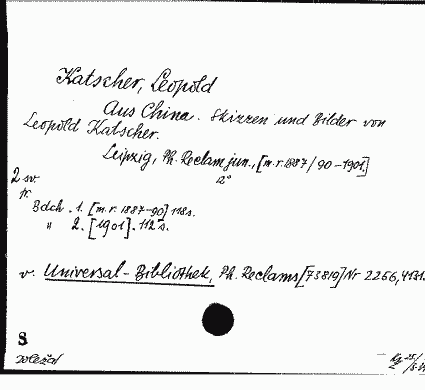 Katscher, Leopold
Aus China. Skizzen und Bilder von
Leopold Katscher.
Leipzig, Ph. Reclam jun., [m.r.1887/90-1901]
2 sv. 8°
fr.
Bdch. 1. [m.r. 1887-90] 118 s.
" 2. [1901]. 112 s.
v. Universal-Bibliothek, Ph. Reclams [73819] Nr 2256, 4131.
S